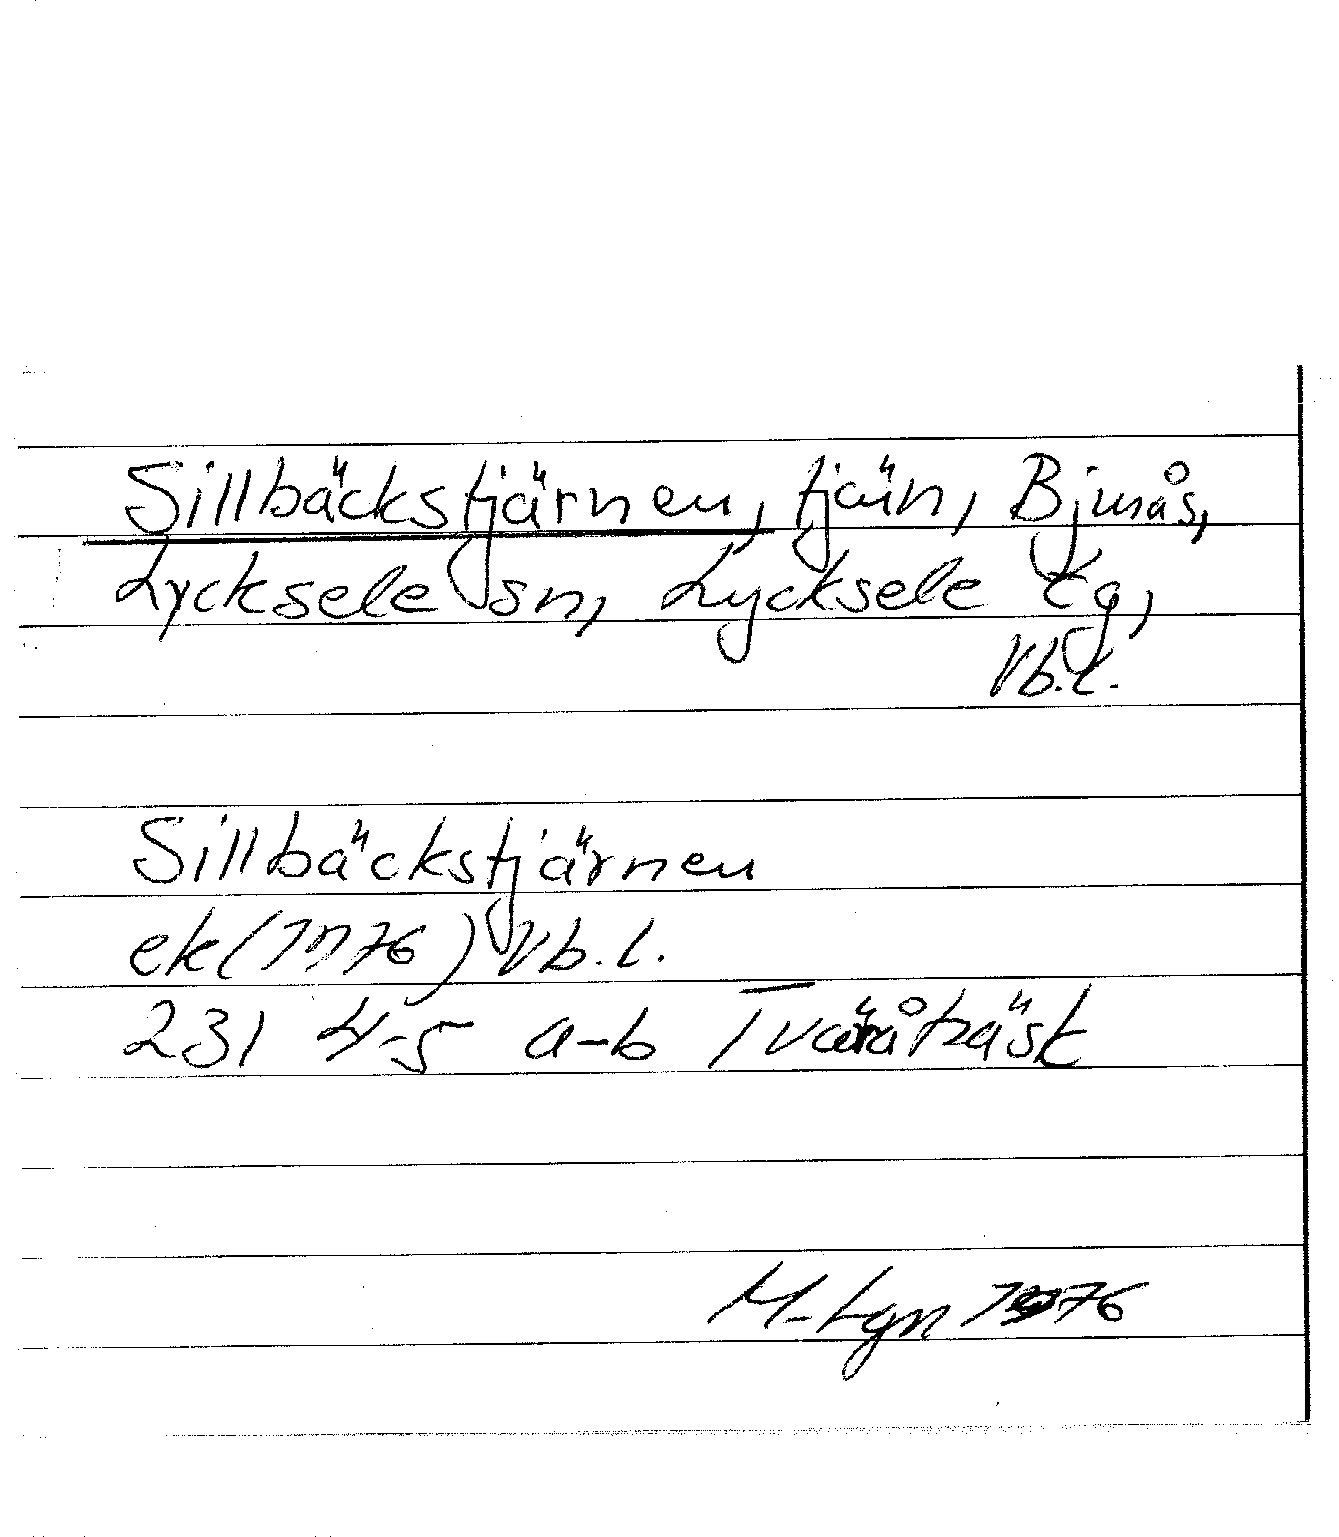 Sillbäckstjärnen, tjärn, Bjurås,
Lycksele sn, Lycksele tg,
Vb.l.
Sillbäckstjärnen
ek (1976) Vb.l.
231 4-5 a-b Tväråträsk
M-Lgn 1976